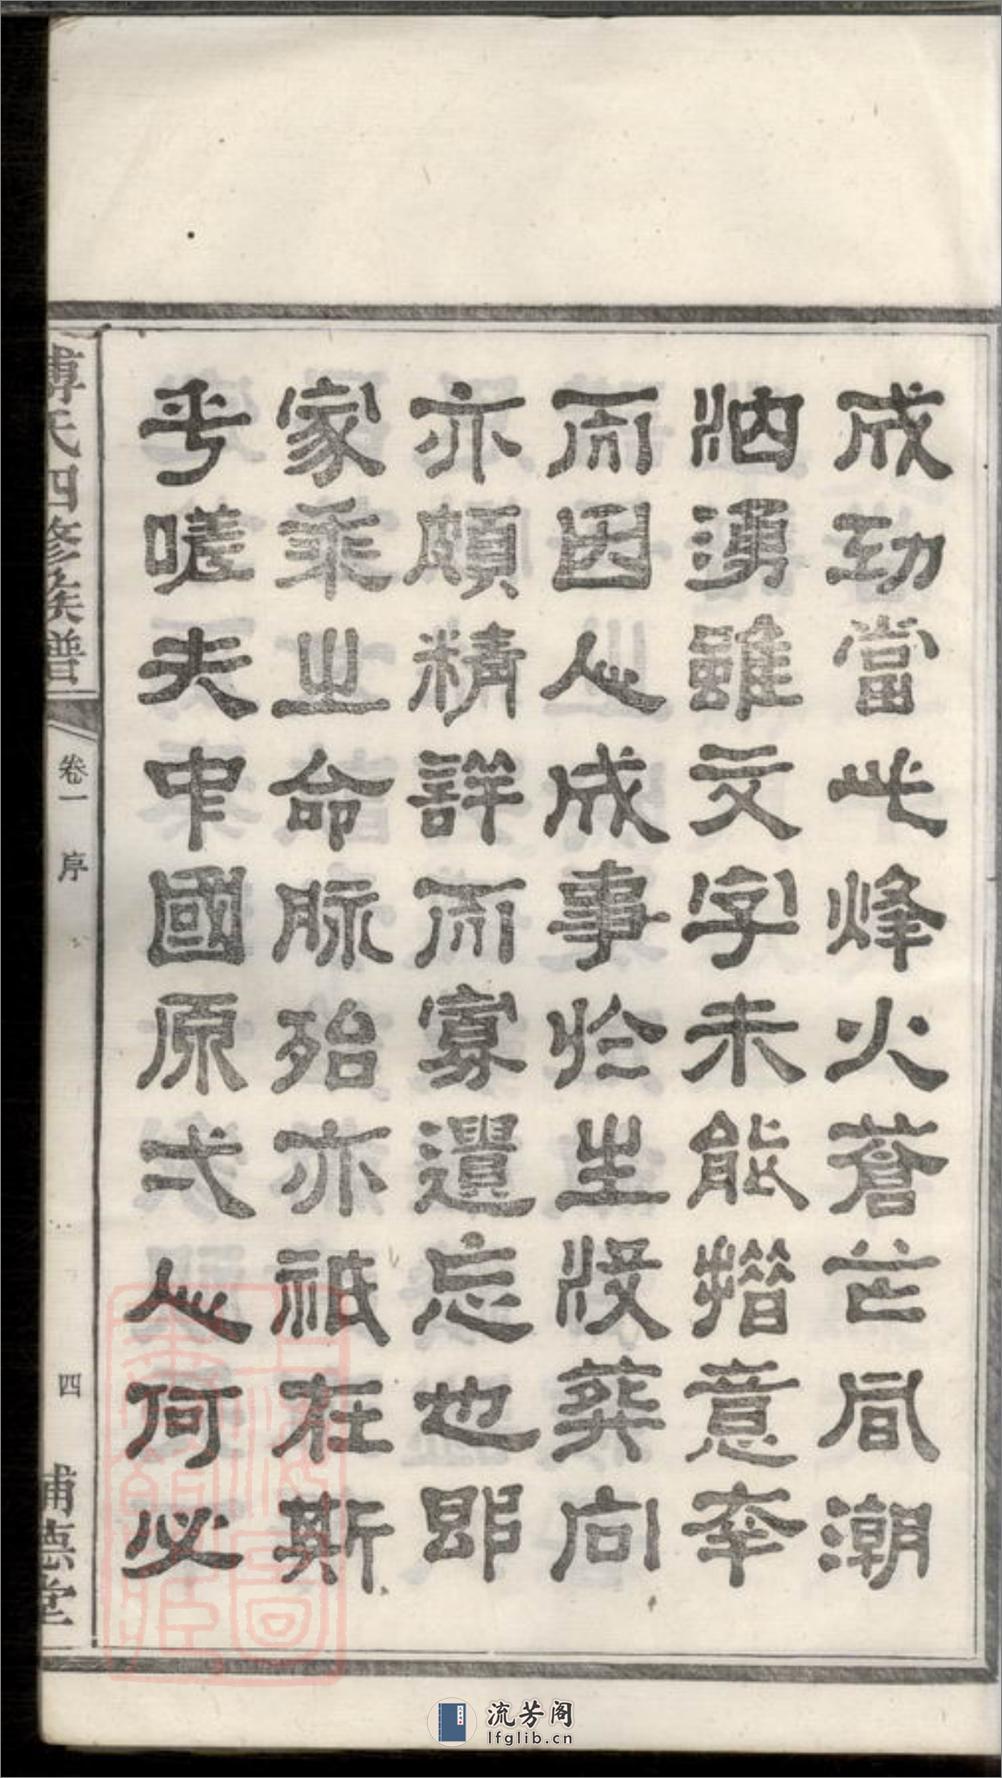 成功當此烽火蒼芒間潮
汹湧雖文字未能措意幸
而因人成事於生歿葬向
亦頗精詳而寡遺忘也即
家乘之命脈殆亦祇在斯
乎嗟夫中國原弌人何必
傅氏四修族譜
卷一 序
四
德堂
流芳阁
lfglib.cn